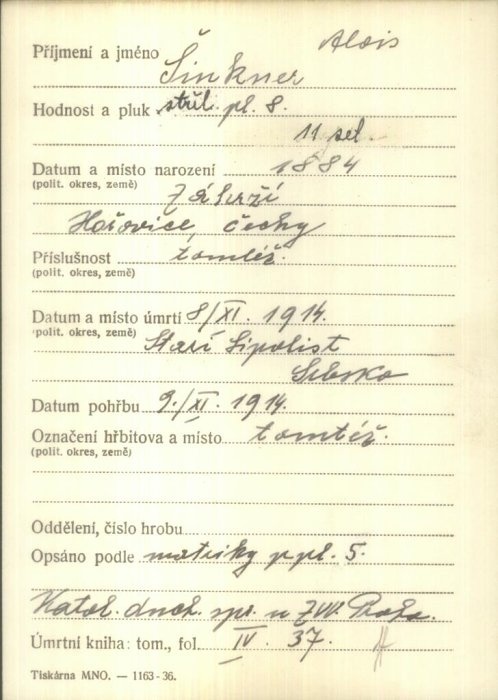 Alois
Příjmení a jméno Šinkner
Hodnost a pluk střel. pl. 8.
11 set.
Datum a místo narození 1884
(polit. okres, země)
Záluží
Hořovice, Čechy
Příslušnost tamtéž.
(polit. okres, země)
Datum a místo úmrtí 8/XI. 1914.
(polit. okres, země) Stari Lipolist
Srbsko
Datum pohřbu 9./XI. 1914.
Označení hřbitova a místo tamtéž.
(polit. okres, země)
Oddělení, číslo hrobu
Opsáno podle matriky p.pl. 5.
Katol. duch. spr. u ZVV. Praha.
Úmrtní kniha: tom., fol. IV. 37.
Tiskárna MNO. — 1163-36.